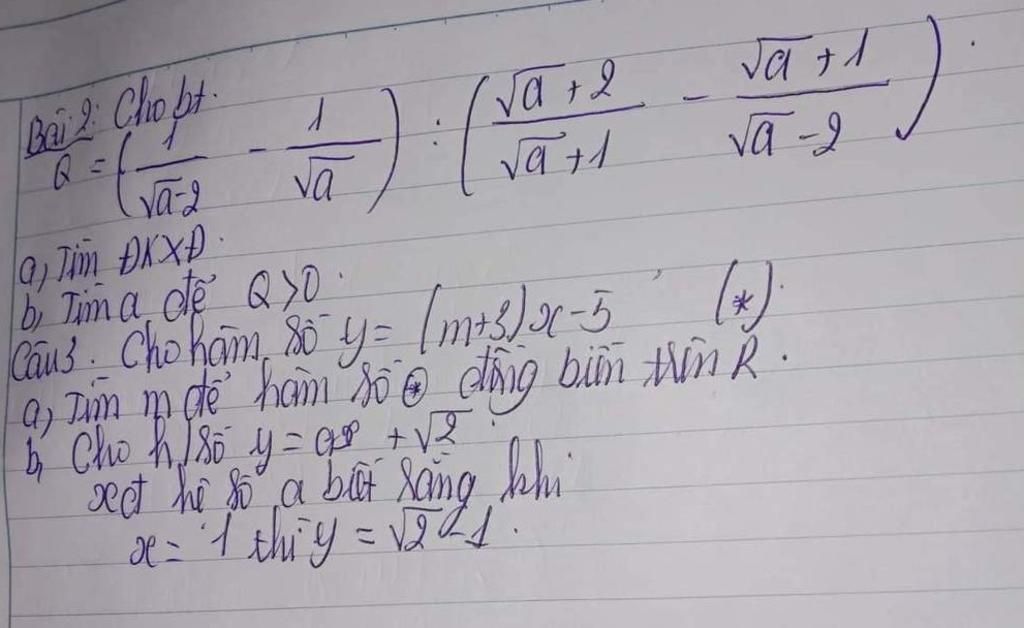 Bài 2: Cho bt.
Q = (1/(√a-2) - 1/√a) : ((√a+2)/(√a+1) - (√a+1)/(√a-2)).
a, Tìm ĐKXĐ.
b, Tìm a để Q>0.
Câu 3. Cho hàm số y = (m+3)x-5 (*).
a, Tìm m để hàm số (*) đồng biến trên R.
b, Cho h/số y = ax + √2.
xđ hệ số a biết rằng khi
x = 1 thì y = √2-1.